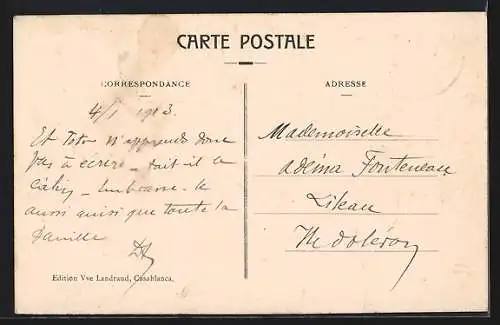 CARTE POSTALE
CORRESPONDANCE
ADRESSE
4/1 1913.
Et Toto n'apprends donc
pas à écrire - fait-il le
Embrasse-le
aussi ainsi que toute la
famille
Mademoiselle
Adéma Fonteneau
Lileau
Ile d'oléron
Edition Vve Landraud, Casablanca.